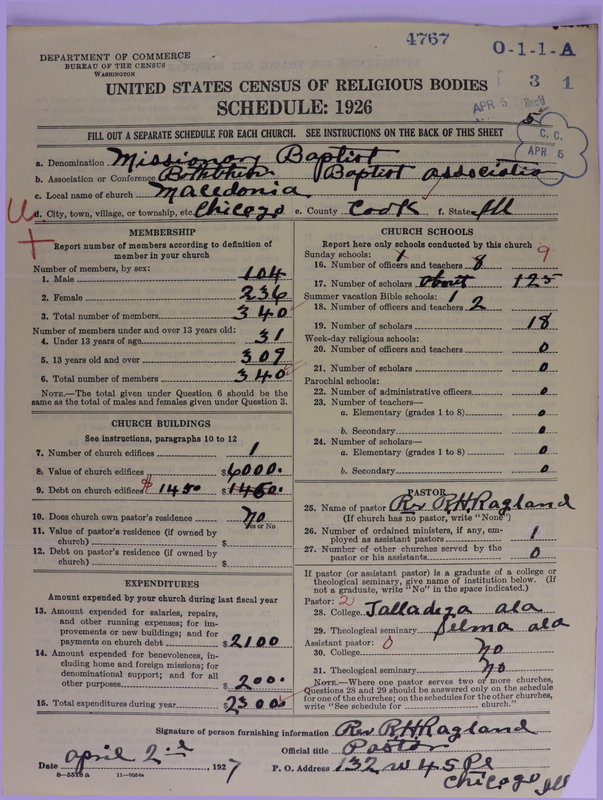 4767
O-1-1-A
DEPARTMENT OF COMMERCE
BUREAU OF THE CENSUS
WASHINGTON
3 1
APR 5 Rec'd
UNITED STATES CENSUS OF RELIGIOUS BODIES
SCHEDULE: 1926
5
C. C.
APR 5
FILL OUT A SEPARATE SCHEDULE FOR EACH CHURCH. SEE INSTRUCTIONS ON THE BACK OF THIS SHEET
a. Denomination Missionary Baptist
b. Association or Conference Baptist association
c. Local name of church Macedonia
d. City, town, village, or township, etc. Chicago e. County Cook f. State Ill
MEMBERSHIP
Report number of members according to definition of
member in your church
Number of members, by sex:
1. Male 104
2. Female 236
3. Total number of members 340
Number of members under and over 13 years old:
4. Under 13 years of age 31
5. 13 years old and over 309
6. Total number of members 340
NOTE.—The total given under Question 6 should be the
same as the total of males and females given under Question 3.
CHURCH BUILDINGS
See instructions, paragraphs 10 to 12
7. Number of church edifices 1
8. Value of church edifices $6000.
9. Debt on church edifices $1450 $1450.
10. Does church own pastor's residence no
Yes or No
11. Value of pastor's residence (if owned by
church) $
12. Debt on pastor's residence (if owned by
church) $
EXPENDITURES
Amount expended by your church during last fiscal year
13. Amount expended for salaries, repairs,
and other running expenses; for im-
provements or new buildings; and for
payments on church debt $2100
14. Amount expended for benevolences, in-
cluding home and foreign missions; for
denominational support; and for all
other purposes $200.
15. Total expenditures during year $2300
CHURCH SCHOOLS
Report here only schools conducted by this church
Sunday schools: 1 9
16. Number of officers and teachers 8
17. Number of scholars about 125
Summer vacation Bible schools: 1
18. Number of officers and teachers 2
19. Number of scholars 18
Week-day religious schools:
20. Number of officers and teachers 0
21. Number of scholars 0
Parochial schools:
22. Number of administrative officers 0
23. Number of teachers—
a. Elementary (grades 1 to 8) 0
b. Secondary 0
24. Number of scholars—
a. Elementary (grades 1 to 8) 0
b. Secondary 0
PASTOR
25. Name of pastor Rev R.H. Ragland
(If church has no pastor, write "None")
26. Number of ordained ministers, if any, em-
ployed as assistant pastors 1
27. Number of other churches served by the
pastor or his assistants 0
If pastor (or assistant pastor) is a graduate of a college or
theological seminary, give name of institution below. (If
not a graduate, write "No" in the space indicated.)
Pastor: 2
28. College Talladega ala
29. Theological seminary Selma ala
Assistant pastor: 0
30. College no
31. Theological seminary no
NOTE.—Where one pastor serves two or more churches,
Questions 28 and 29 should be answered only on the schedule
for one of the churches; on the schedules for the other churches,
write "See schedule for church."
Signature of person furnishing information Rev R.H. Ragland
Official title Pastor
Date april 2nd, 1927
P. O. Address 132 W 45 Pl
Chicago Ill
8—5518a 11—9354a